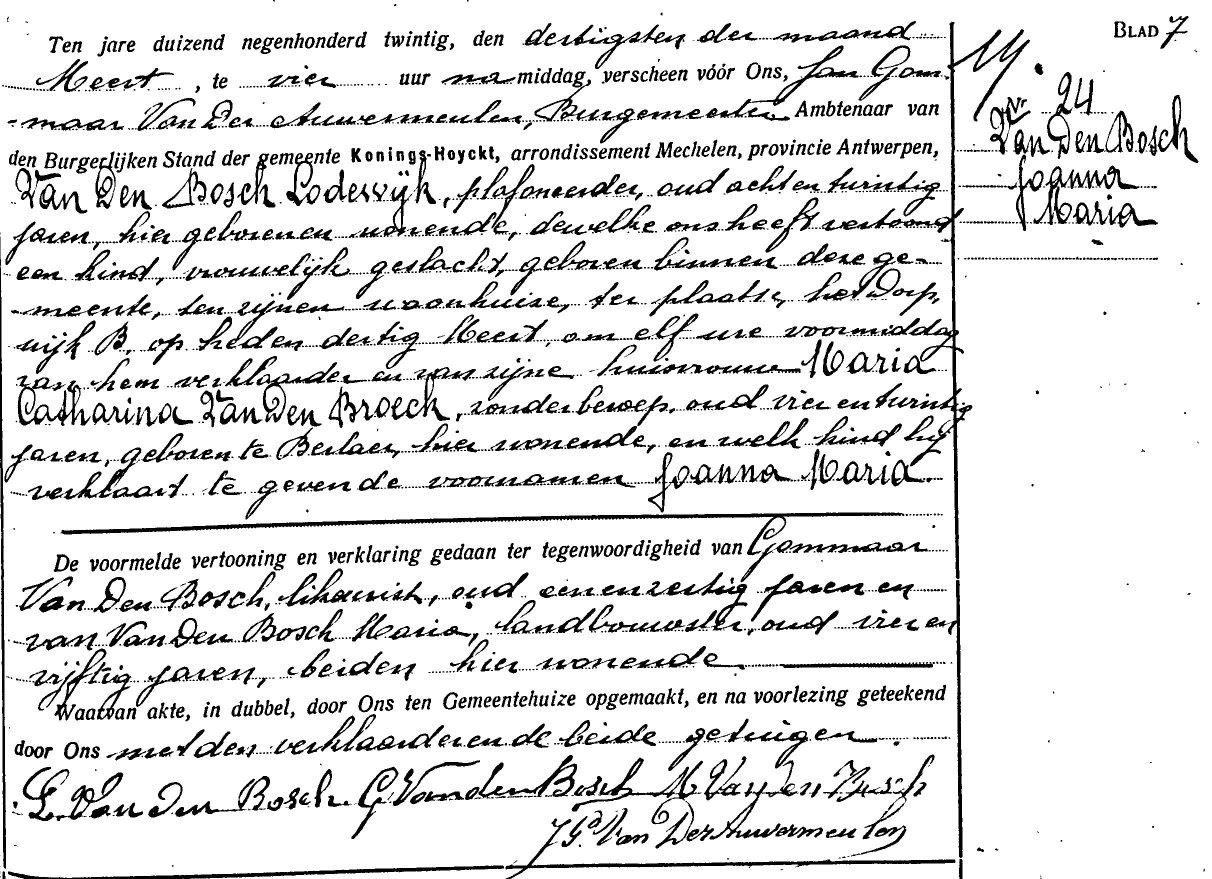 BLAD 7
Ten jare duizend negenhonderd twintig, den dertigsten der maand
Meert, te vier uur na middag, verscheen vóór Ons, Jan Gom-
-maar Van Der Auwermeulen, Burgemeester Ambtenaar van
den Burgerlijken Stand der gemeente Konings-Hoyckt, arrondissement Mechelen, provincie Antwerpen,
Van Den Bosch Lodewijk, plafoneerder, oud acht en twintig
jaren, hier geboren en wonende, dewelke ons heeft vertoond
een kind, vrouwelijk geslacht, geboren binnen deze ge-
-meente, ten zijnen woonhuize, ter plaatse het Dorp,
wijk B, op heden dertig Meert, om elf ure voormiddag
van hem verklaarder en van zijne huisvrouw Maria
Catharina Van Den Broeck, zonder beroep, oud vier en twintig
jaren, geboren te Berlaer, hier wonende, en welk kind hij
verklaart te geven de voornamen Joanna Maria.
De voormelde vertooning en verklaring gedaan ter tegenwoordigheid van Gommaar
Van Den Bosch, likeurist, oud een en zestig jaren en
van Van Den Bosch Maria, landbouwster, oud vier en
vijftig jaren, beiden hier wonende.
Waarvan akte, in dubbel, door Ons ten Gemeentehuize opgemaakt, en na voorlezing geteekend
door Ons met den verklaarder en de beide getuigen.
L. Van den Bosch G Van den Bosch M Van den Bosch
J Gr Van Der Auwermeulen
Nr 24
Van Den Bosch
Joanna
Maria